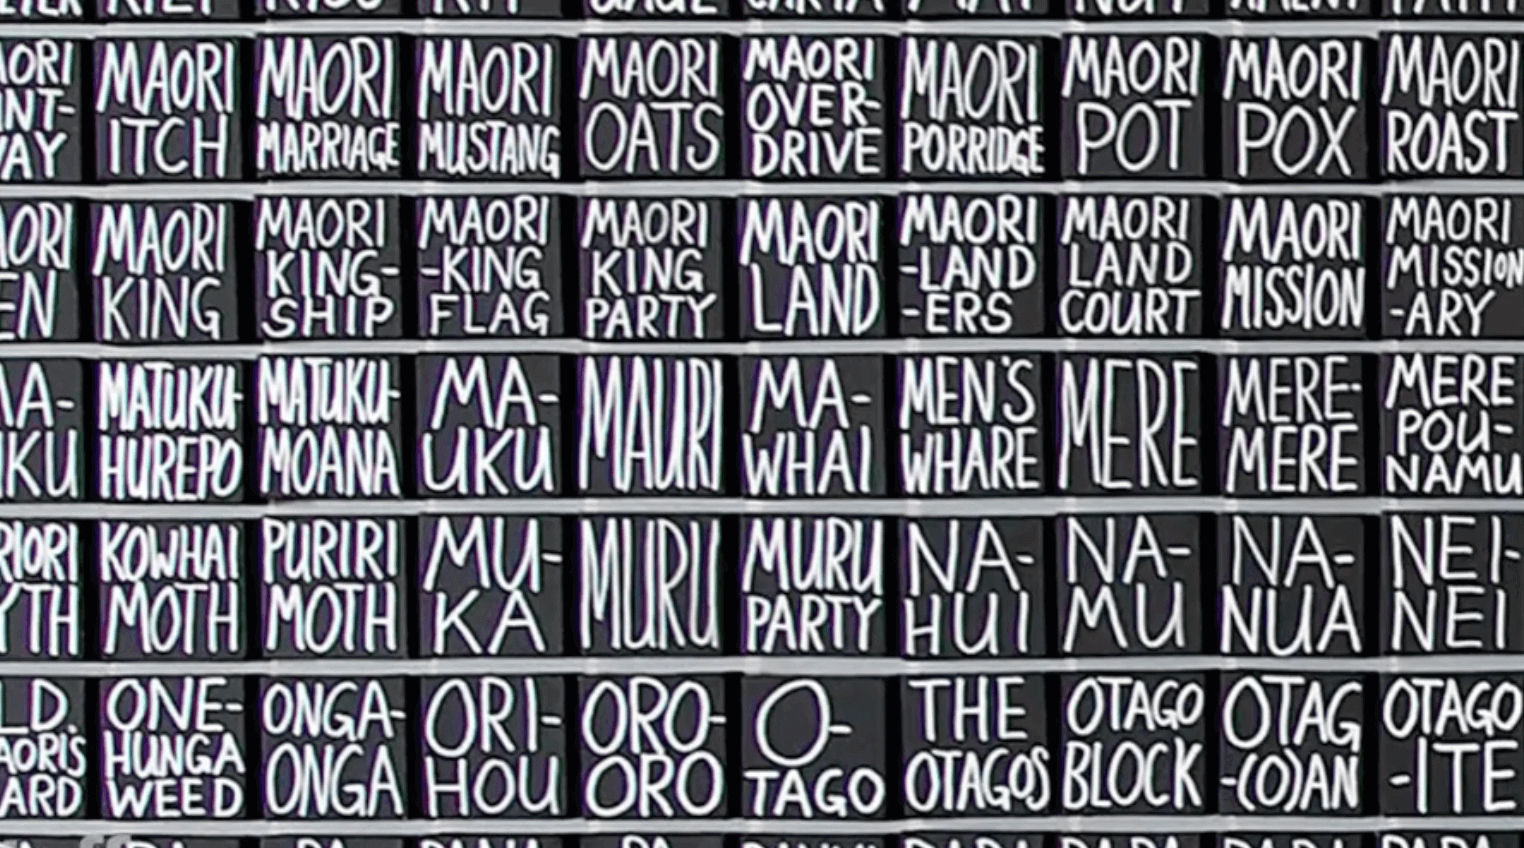 MAORI ITCH
MAORI MARRIAGE
MAORI MUSTANG
MAORI OATS
MAORI OVER-DRIVE
MAORI PORRIDGE
MAORI POT
MAORI POX
MAORI ROAST
MAORI KING
MAORI KING-SHIP
MAORI -KING FLAG
MAORI KING PARTY
MAORI LAND
MAORI -LAND -ERS
MAORI LAND COURT
MAORI MISSION
MAORI MISSION -ARY
MATUKU-HUREPO
MATUKU-MOANA
MA-UKU
MAURI
MA-WHAI
MEN'S WHARE
MERE
MERE-MERE
MERE POU-NAMU
KOWHAI MOTH
PURIRI MOTH
MU-KA
MURU
MURU PARTY
NA-HUI
NA-MU
NA-NUA
NEI-NEI
ONE-HUNGA WEED
ONGA-ONGA
ORI-HOU
ORO-ORO
O-TAGO
THE OTAGOS
OTAGO BLOCK
OTAG -(O)AN
OTAGO -ITE